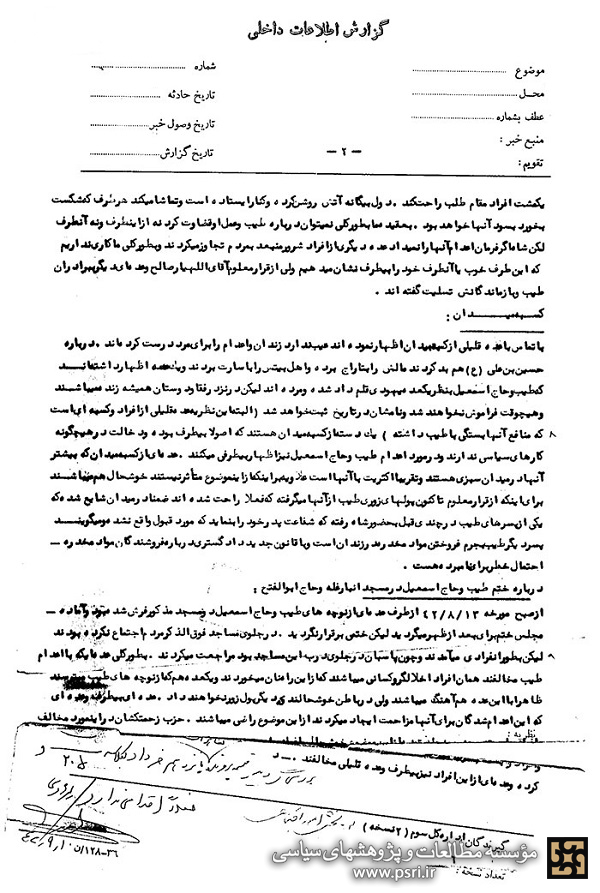 گزارش اطلاعات داخلی
شماره
موضوع
تاریخ حادثه
محل
تاریخ وصول خبر
عطف بشماره
منبع خبر :
تاریخ گزارش
- ۲ -
تقویم :
یکمشت افراد مقام طلب راحت کند . دول بیگانه آتش روشن کرده و کنار ایستاده است و تماشا میکند هر طرف که شکست
بخورد بسود آنها خواهد بود . بعقیده ما بطور کلی نمیتوان درباره طیب و عمل او قضاوت کرد نه از اینطرف و نه آنطرف
لکن شاه اگر فرمان اعدام آنها را نمیداد عده دیگری از افراد شرور منبعد بمردم تجاوز میکردند و بطور کلی ما کاری نداریم
که این طرف خوب یا آنطرف خود را بیطرف نشان میدهیم ولی از قرار معلوم آقای اللهیار صالح وعده ای دیگر بیرادران
طیب و بازماندگانش تسلیت گفته اند .
کسبه میدان :
با تماس با عده قلیلی از کسبه میدان اظهار نموده اند عیب ندارد زندان و اعدام را برای مرد درست کرده اند . درباره
حسین بن علی (ع) هم بد کردند مالش را بتاراج برده و اهل بیتش را با سارت بردند و یکعده اظهار داشته اند
که طیب و حاج اسمعیل بنظر یکعده میهودی قلم داد شده و مرده اند لیکن در نزد رفقا و دوستان همیشه زنده میباشند
و هیچوقت فراموش نخواهند شد و نامشان در تاریخ ثبت خواهد شد (البته این نظریه عده قلیلی از افراد و کسبه ای است
که منافع آنها بستگی با طیب داشته ) یک دسته از کسبه میدان هستند که اصولا بیطرف بوده و دخالت در هیچگونه
کارهای سیاسی ندارند و در مورد اعدام طیب و حاج اسمعیل نیز اظهار بیطرفی میکنند . عده ای از کسبه میدان که بیشتر
آنها در میدان سبزی هستند و تقریبا اکثریت با آنها است علاوه بر اینکه از این موضوع متأثر نیستند خوشحال هم میباشند
برای اینکه از قرار معلوم تاکنون پولهای زوری طیب از آنها میگرفته که فعلا راحت شده اند ضمنا در میدان شایع شده که
یکی از پسرهای طیب در چندی قبل بحضور شاه رفته که شفاعت پدر خود را بنماید که مورد قبول واقع نشده و میگویند
پسر دیگر طیب بجرم فروختن مواد مخدره در زندان است و با قانون جدید دادگستری درباره فروشندگان مواد مخدره -
احتمال خطر برای نامبرده هست .
درباره ختم طیب و حاج اسمعیل در مسجد انبار غله و حاج ابوالفتح :
از صبح مورخه ۴۲/۸/۱۳ از طرف عده ای از نوچه های طیب و حاج اسمعیل در مسجد مذکور فرش شده بود و آماده -
مجلس ختم برای بعد از ظهر میگردید لیکن ختمی برقرار نگردید . در جلوی مساجد فوق الذکر مردم اجتماع نکرده بودند
لیکن بطور انفرادی میآمدند و چون پاسبان در جلوی درب این مساجد بود مراجعت میکردند . بطور کلی عده ایکه با اعدام
طیب مخالفند همان افراد اخلالگر و کسانی میباشند که از این راه نان میخوردند و یکعده هم که از نوچه های طیب میترسند
ظاهرا با این عده هم آهنگ میباشند ولی در باطن خوشحالند که دیگر پول زور نخواهند داد . عده ای بیطرف و عده ای
که این اعدام شدگان برای آنها مزاحمت ایجاد میکردند از این موضوع راضی میباشند . حزب زحمتکشان را بنمورد مخالف
نظریه :
کرده وعده ای از این افراد نیز بیطرف وعده قلیلی مخالفند . - د
گیرندگان اداره کل سوم (۲ نسخه)
تعداد نسخه :
مؤسسه مطالعات و پژوهشهای سیاسی
www.psri.ir